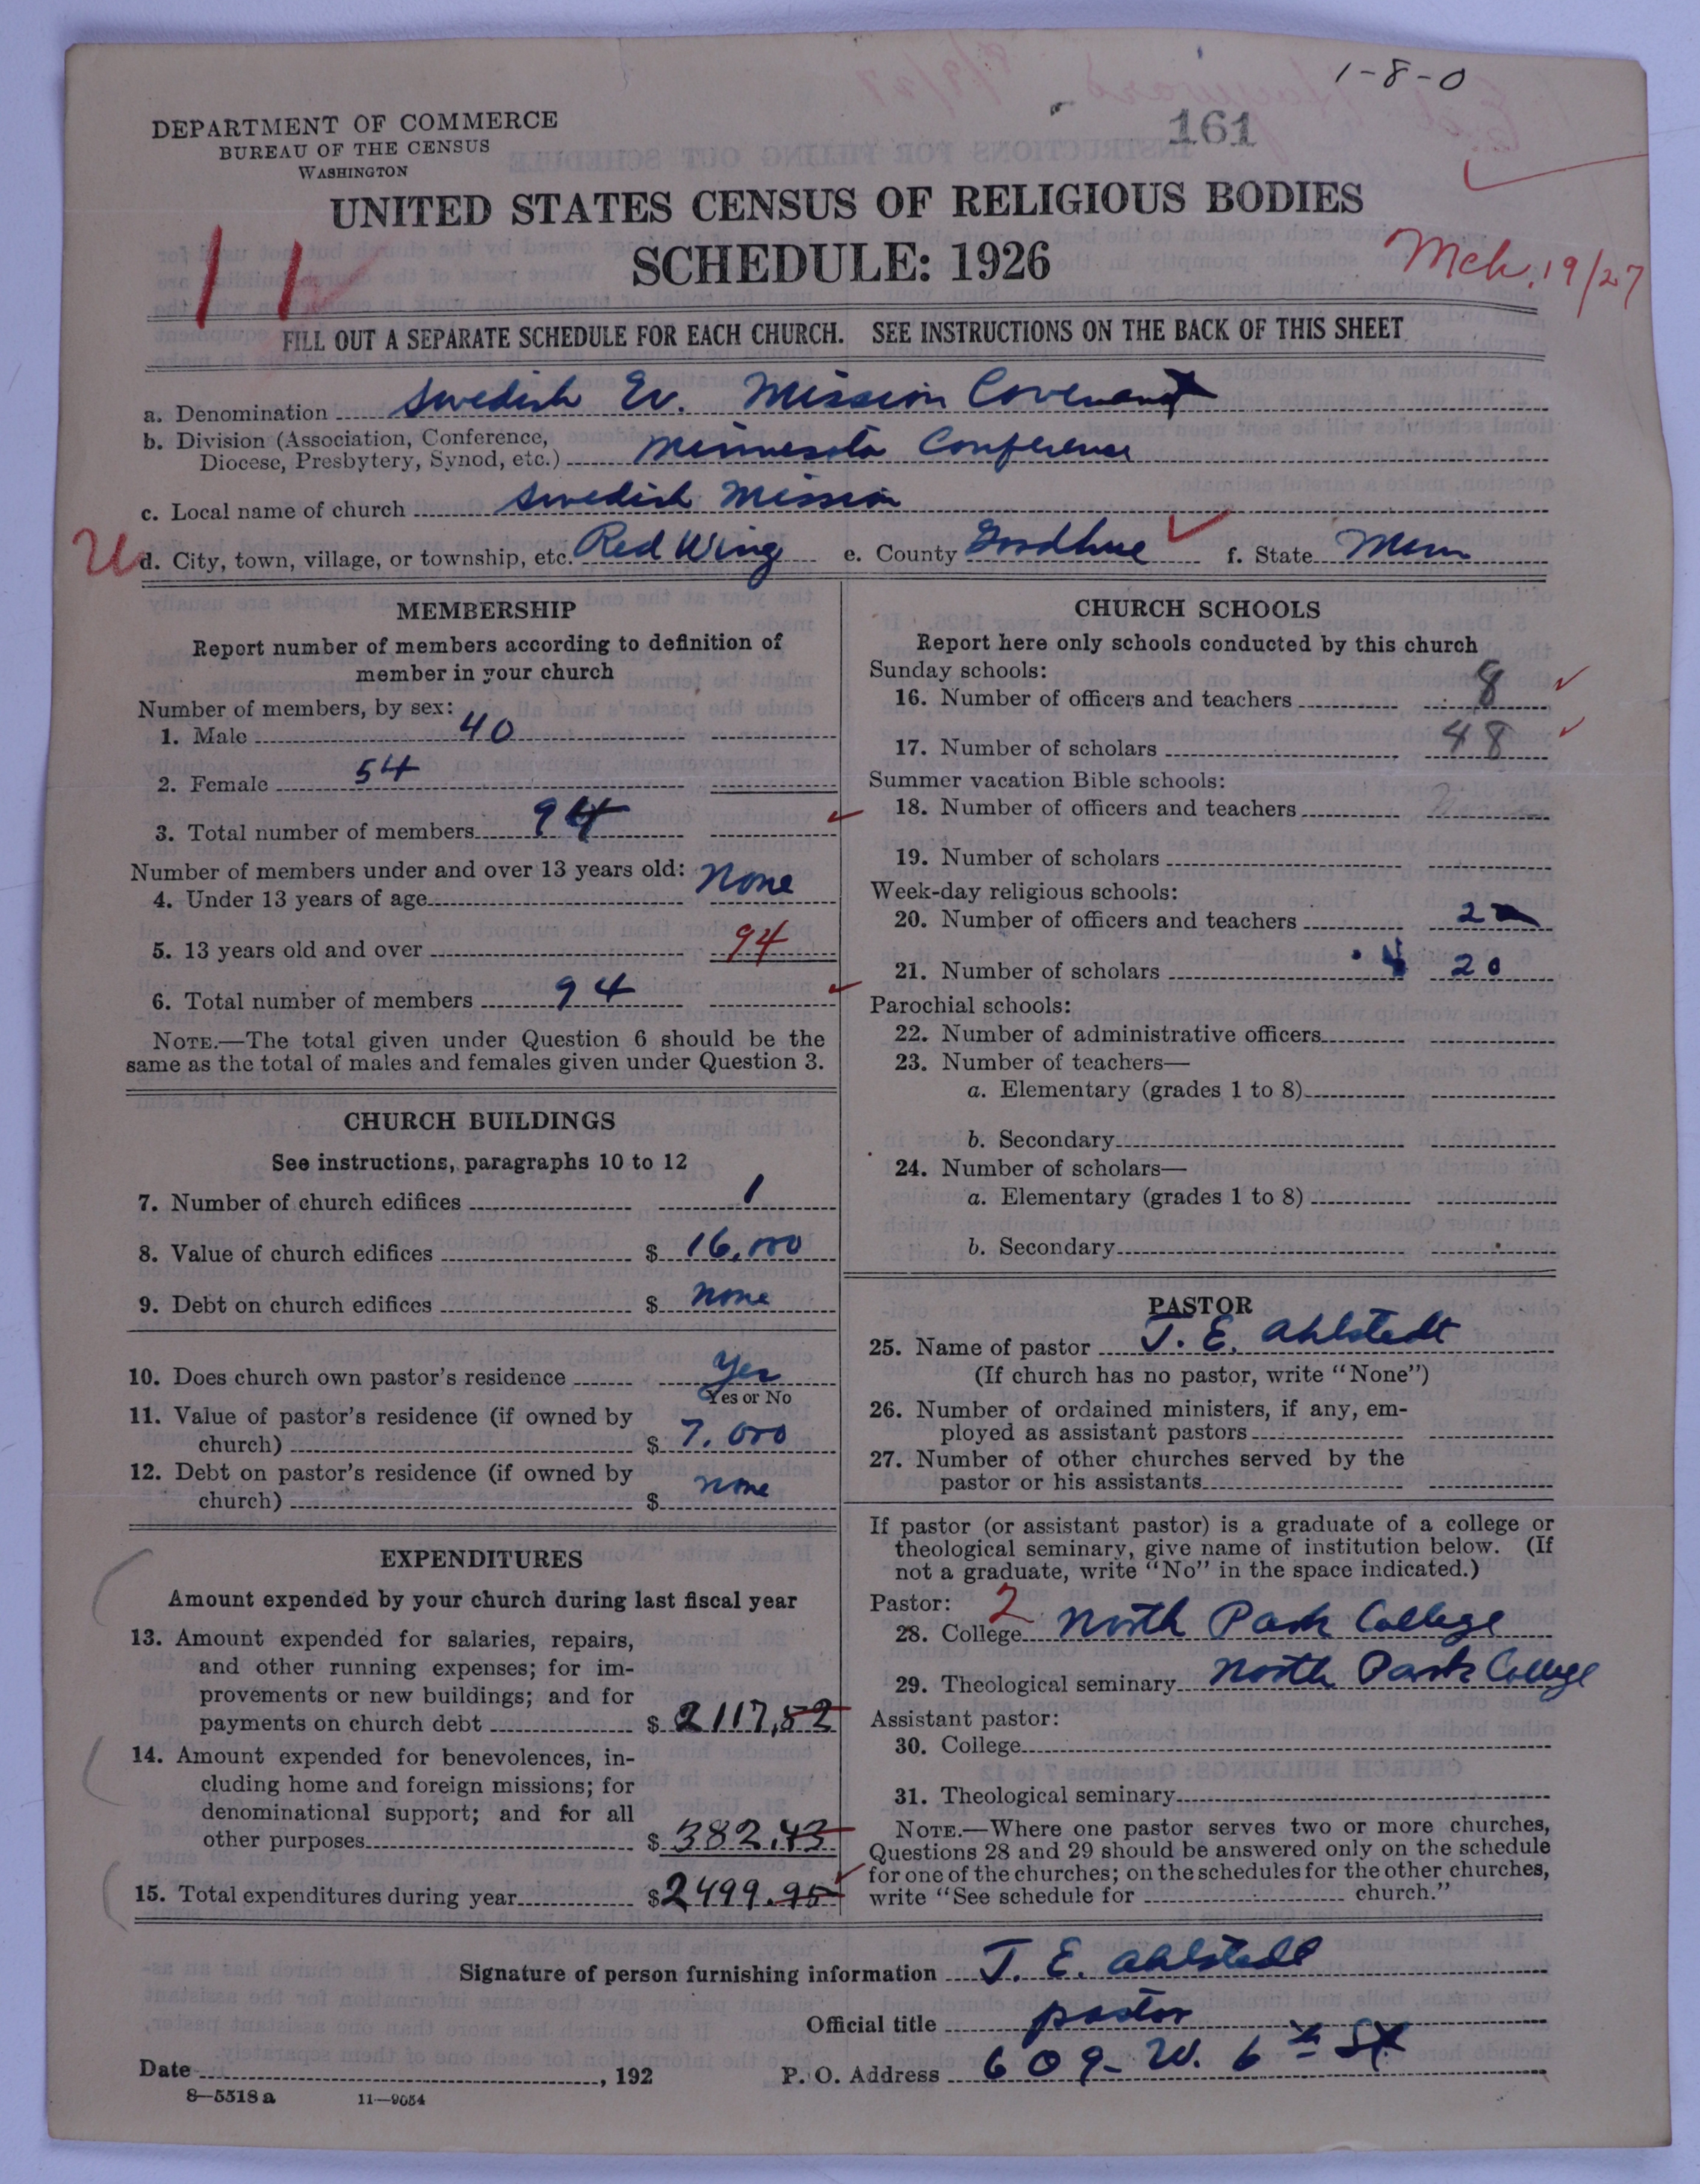 1-8-0
161
DEPARTMENT OF COMMERCE
BUREAU OF THE CENSUS
WASHINGTON
UNITED STATES CENSUS OF RELIGIOUS BODIES
SCHEDULE: 1926
11
Mch. 19/27
FILL OUT A SEPARATE SCHEDULE FOR EACH CHURCH. SEE INSTRUCTIONS ON THE BACK OF THIS SHEET
a. Denomination Swedish Ev. Mission Covenant
b. Division (Association, Conference,
Diocese, Presbytery, Synod, etc.) Minnesota Conference
c. Local name of church Swedish Mission
U d. City, town, village, or township, etc. Red Wing e. County Goodhue f. State Minn
MEMBERSHIP
Report number of members according to definition of
member in your church
Number of members, by sex:
1. Male 40
2. Female 54
3. Total number of members 94
Number of members under and over 13 years old:
4. Under 13 years of age None
5. 13 years old and over 94
6. Total number of members 94
NOTE.—The total given under Question 6 should be the
same as the total of males and females given under Question 3.
CHURCH BUILDINGS
See instructions, paragraphs 10 to 12
7. Number of church edifices 1
8. Value of church edifices $ 16,000
9. Debt on church edifices $ none
10. Does church own pastor's residence Yes
Yes or No
11. Value of pastor's residence (if owned by
church) $ 7,000
12. Debt on pastor's residence (if owned by
church) $ none
EXPENDITURES
Amount expended by your church during last fiscal year
13. Amount expended for salaries, repairs,
and other running expenses; for im-
provements or new buildings; and for
payments on church debt $ 2117,52
14. Amount expended for benevolences, in-
cluding home and foreign missions; for
denominational support; and for all
other purposes $ 382.43
15. Total expenditures during year $ 2499.95
CHURCH SCHOOLS
Report here only schools conducted by this church
Sunday schools:
16. Number of officers and teachers 8
17. Number of scholars 48
Summer vacation Bible schools:
18. Number of officers and teachers
19. Number of scholars
Week-day religious schools:
20. Number of officers and teachers 2
21. Number of scholars 20
Parochial schools:
22. Number of administrative officers
23. Number of teachers—
a. Elementary (grades 1 to 8)
b. Secondary
24. Number of scholars—
a. Elementary (grades 1 to 8)
b. Secondary
PASTOR
25. Name of pastor J. E. Ahlstedt
(If church has no pastor, write "None")
26. Number of ordained ministers, if any, em-
ployed as assistant pastors
27. Number of other churches served by the
pastor or his assistants
If pastor (or assistant pastor) is a graduate of a college or
theological seminary, give name of institution below. (If
not a graduate, write "No" in the space indicated.)
Pastor: 2
28. College North Park College
29. Theological seminary North Park College
Assistant pastor:
30. College
31. Theological seminary
NOTE.—Where one pastor serves two or more churches,
Questions 28 and 29 should be answered only on the schedule
for one of the churches; on the schedules for the other churches,
write "See schedule for church."
Signature of person furnishing information J. E. Ahlstedt
Official title pastor
Date , 192 P. O. Address 609- W. 6th St
8—5518 a 11—9054